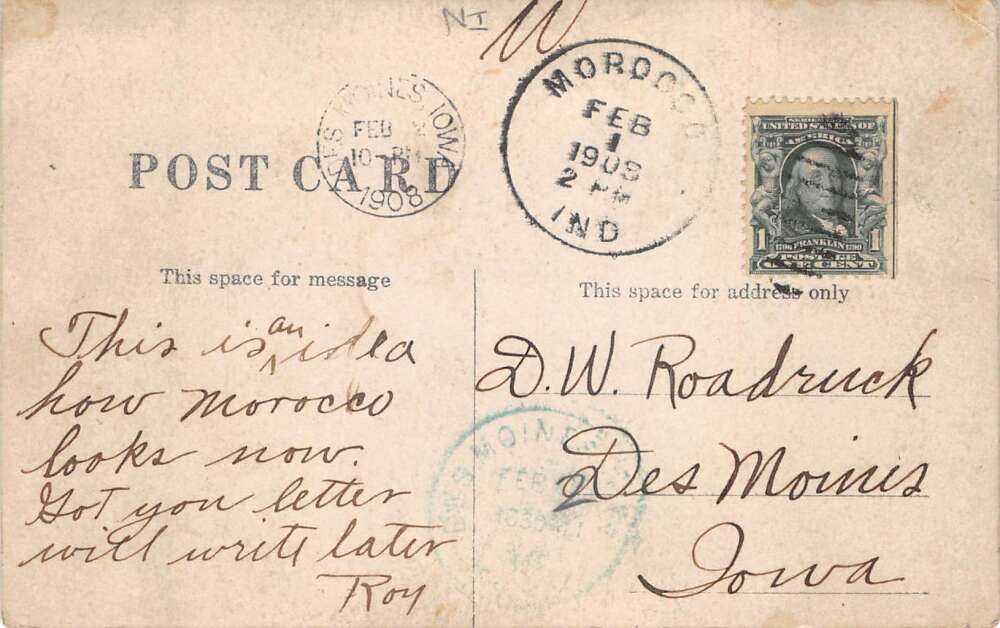 NI
W
DES MOINES, IOWA
FEB 2
10- PM
1908
MOROCCO
FEB
1
1908
2 PM
IND
SERIES
UNITED STATES OF
AMERICA
1 1706 FRANKLIN 1790 1
POSTAGE
ONE CENT
POST CARD
This space for message
This space for address only
This is an idea
how Morocco
looks now.
Got you letter
will write later
Roy
D.W. Roadruck
Des Moines
Iowa
DES MOINES
FEB
2